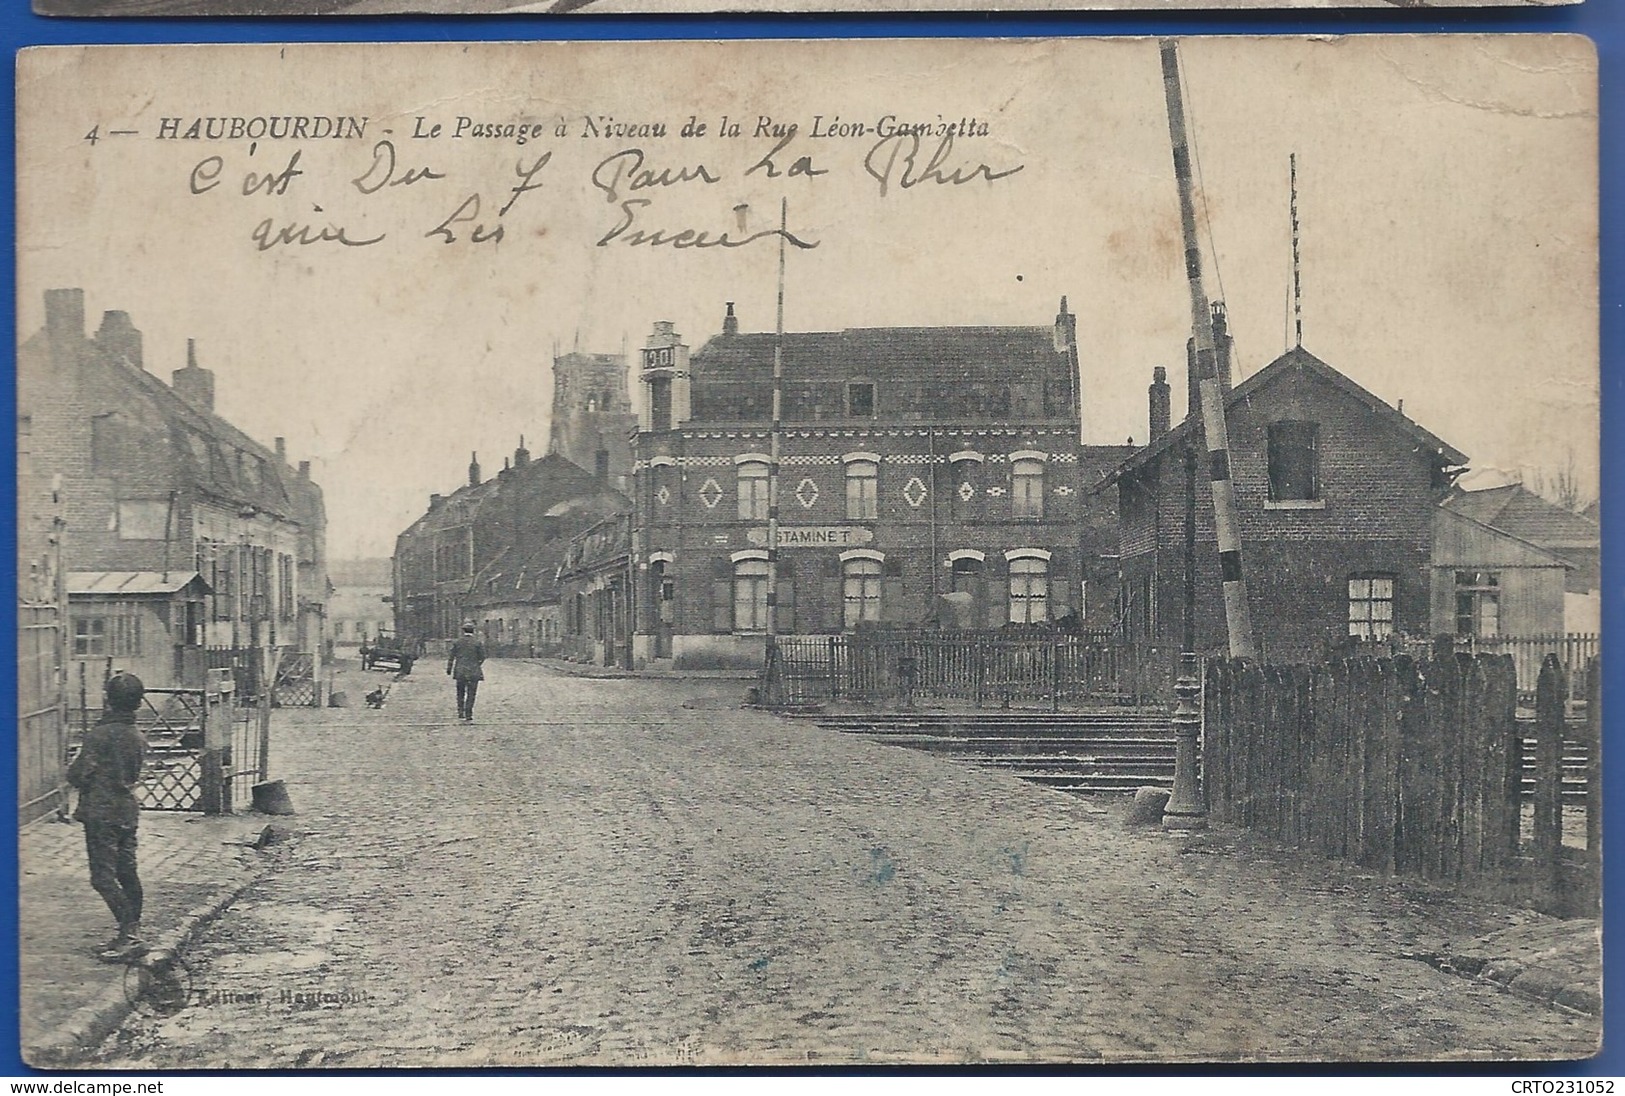 4 — HAUBOURDIN - Le Passage à Niveau de la Rue Léon-Gambetta
c'est Du 7 Pour La
Les
1901
ESTAMINET
Editeur, Hautmont
www.delcampe.net
CRTO231052